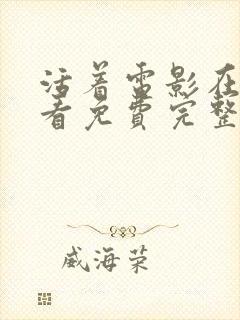 活着雷影在
看免费完整
威海荣